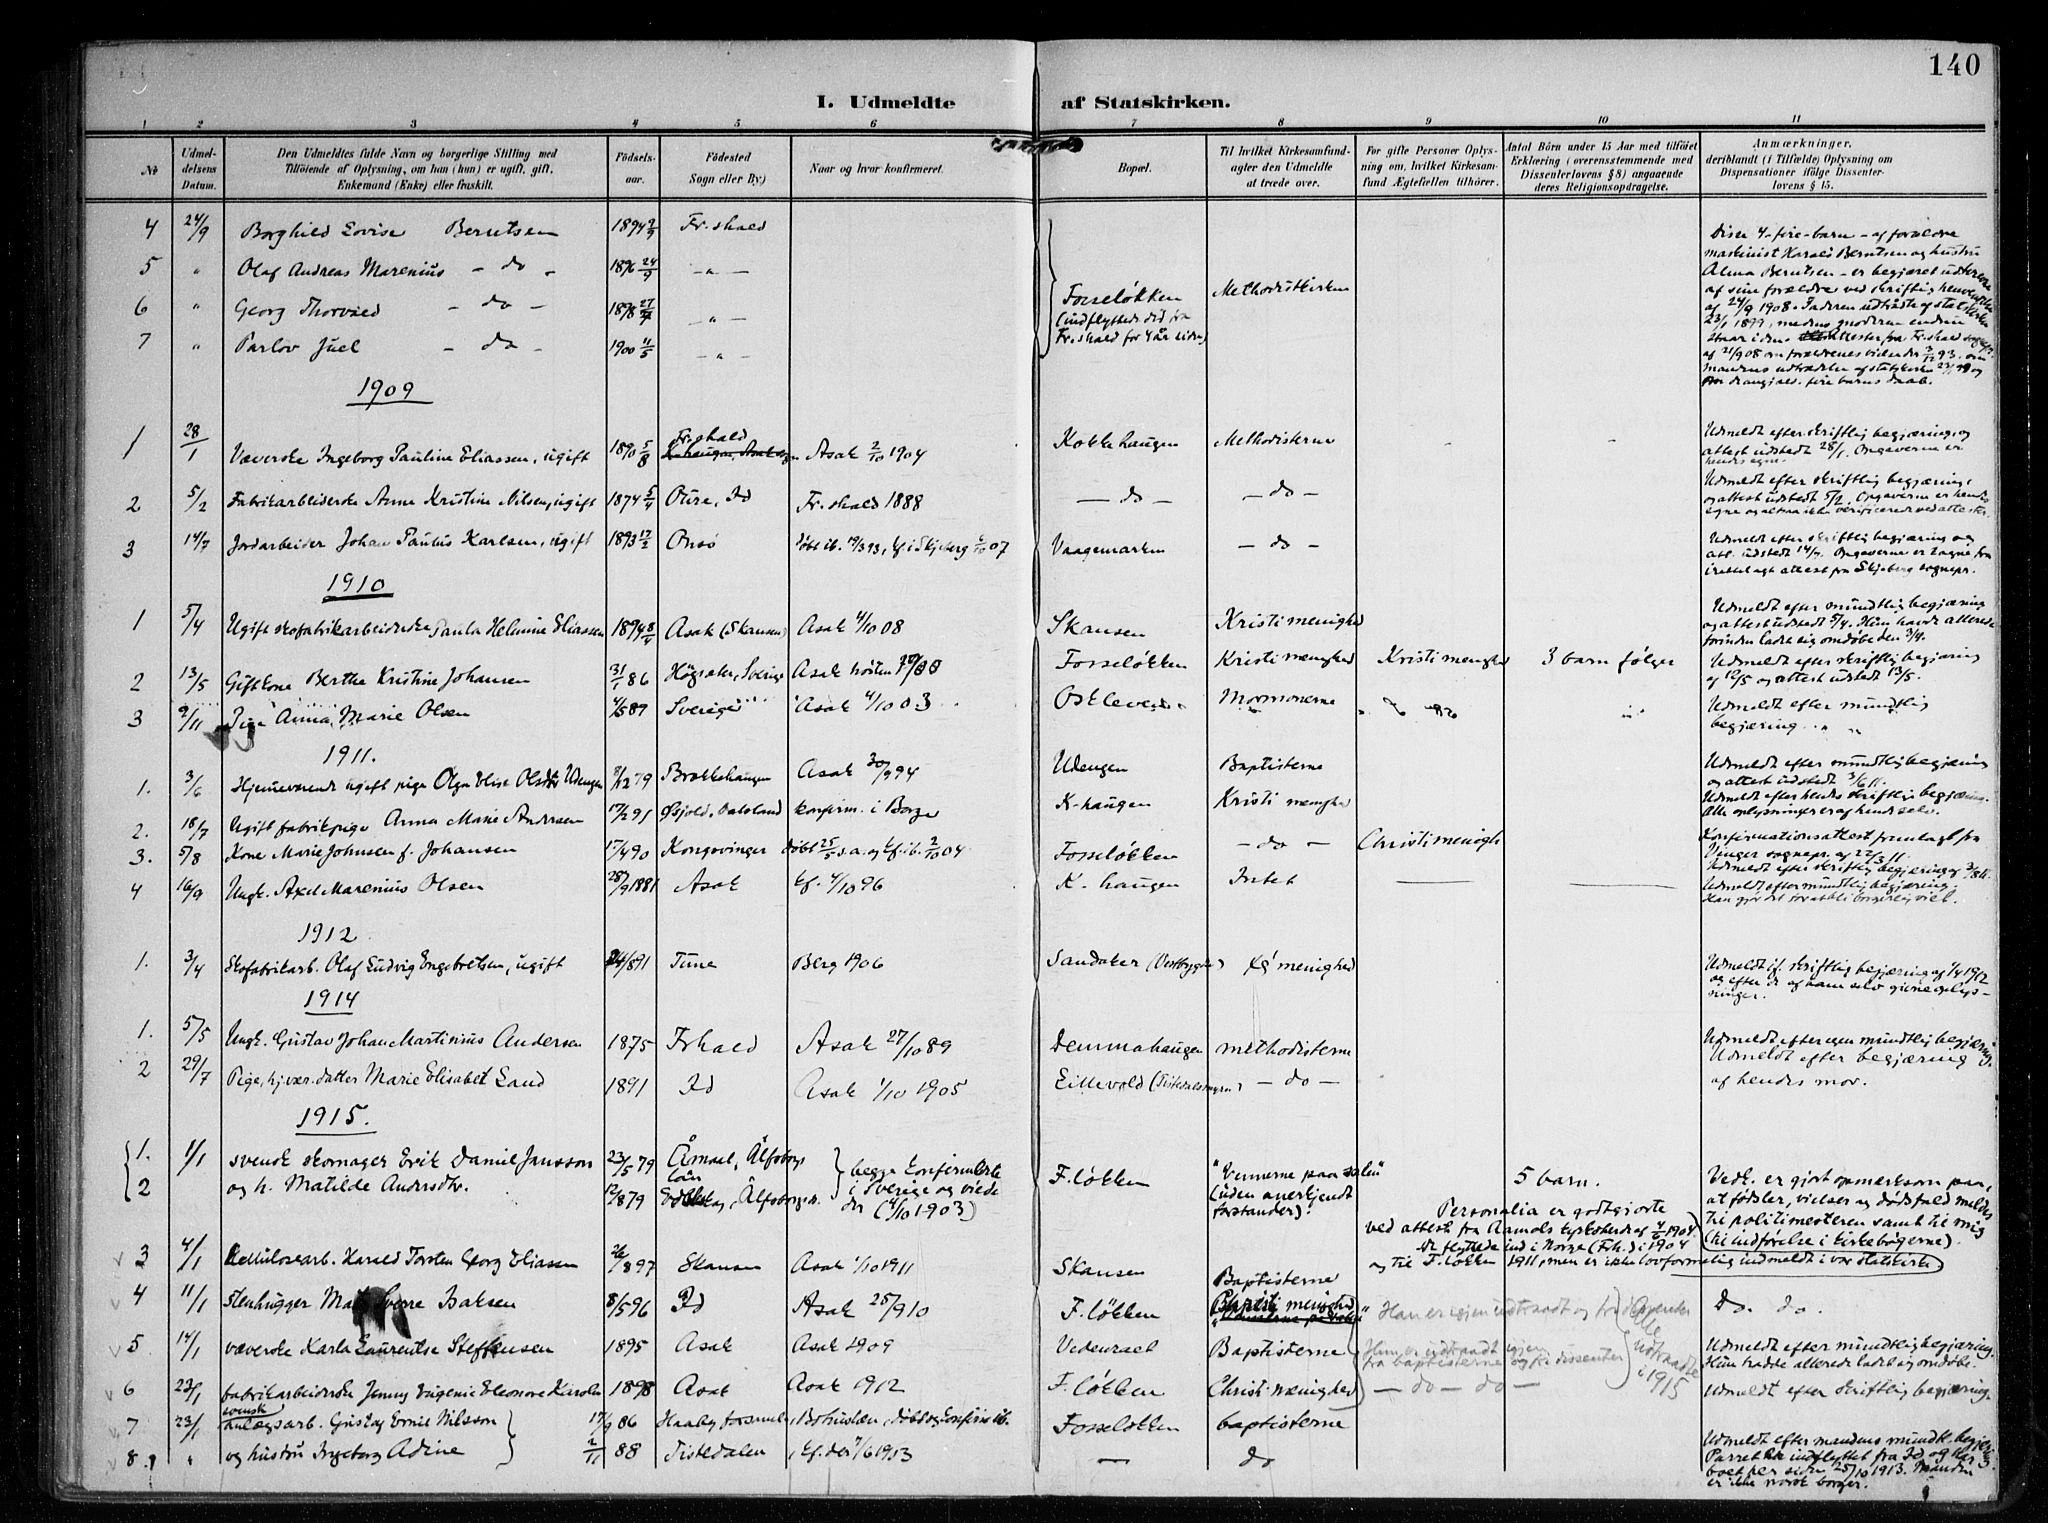 140
I. Udmeldte af Statskirken.
1 2 3 4 5 6 7 8 9 10 11
No
Udmeldelsens Datum.
Den Udmeldtes fulde Navn og borgerlige Stilling med
Tilføiende af Oplysning, om han (hun) er ugift, gift,
Enkemand (Enke) eller fraskilt.
Fødselsaar.
Fødested
Sogn eller By.)
Naar og hvor konfirmeret.
Bopæl.
Til hvilket Kirkesamfund
agter den Udmeldte
at træde over.
For gifte Personer Oplysning
om, hvilket Kirkesamfund
Ægtefællen tilhører.
Antal Børn under 15 Aar med tilføiet
Erklæring (overensstemmende med
Dissenterlovens § 8) angaaende
deres Religionsopdragelse.
Anmærkninger,
deriblandt (i Tilfælde) Oplysning om
Dispensationer ifølge Dissenterlovens § 15.
4 24/9 Borghild Lovise Berntsen 1894 Fr.shald
5 " Olaf Andreas Marenius - do - 1896 24/9 - " -
6 " Georg Thorvald - do - 1898 - " -
7 " Parlov Juel - do - 1900 11/5 - " -
Fosseløkken
(indflyttede did fra
Fr.shald for 4 år siden)
Methodistkirken
Disse 4 - fire - barn - af forældre
maskinist Harald Berntsen og hustru
Alma Berntsen - er begjæret udtrædt
af sine forældre ved skriftlig henvendelse
af 24/9 1908. Faderen udtrådte af statskirken
23/1 1899, medens moderen endnu
staar i den. attester fra Fr.shald
af 21/9 08 om forældrenes vielse 93, om
mandens udtrædelse af statskirke 23/1 99 og
om de angjæld. fire barns daab.
1909
1 28/1 Væverske Ingeborg Pauline Eliassen, ugift 1890 5/8 Fr.shald Asak 2/10 1904 Kokkehaugen Methodisterne - -
Udmeldt efter skriftlig begjæring, og
attest udstedt 28/1. Opgaverne er
hendes egne.
2 5/2 Fabrikarbeiderske Anna Kristine Nilsen, ugift 1874 5/4 Idd Fr.shald 1888 - do - - do -
Udmeldt efter skriftlig begjæring,
og attest udstedt 5/2. Opgaverne er hendes
egne og altsaa ikke verificerede ved attester.
3 14/7 Jordarbeider Johan Paulus Karlsen, ugift 1893 17/2 Onsø døbt ib. 19/3 93, kf. i Skjeberg 07 Vaagemarken - do -
Udmeldt efter skriftlig begjæring og
att. udstedt 14/7. Opgaverne er tagne fra
irettelagt attest fra Skjeberg sognepr.
1910
1 5/4 Ugift skofabrikarbeiderske Paula Helmine Eliassen 1894 8/4 Asak (Skansen) Asak 4/10 08 Skansen Kristi menighed
Udmeldt efter mundtlig begjæring
og attest udstedt 5/4. Hun havde allerede
forinden ladt sig omdøbe den 3/4.
2 13/5 Gift kone Berthe Kristine Johansen 31/1 86 Högsäter, Sverige Asak høsten Fosseløkken Kristi menighed Kristi menighed 3 barn følger
Udmeldt efter skriftlig begjæring
af 12/5 og attest udstedt 13/5.
3 9/11 Pige Anna Marie Olsen 4/5 89 Sverige Asak 4/10 03 Mormonerne
Udmeldt efter mundtlig
begjæring. " "
1911.
1. 3/6 Hjemmeværende ugift pige Olga Elise Olsdtr Udengen 9/12 79 Brækkehaugen Asak 30/9 94 Udengen Baptisterne
Udmeldt efter mundtlig begjæring
og attest udstedt 3/6 11.
2. 18/7 Ugift fabrikpige Anna Marie Andersen 17/2 91 Dalsland konfirm. i Borge K-haugen Kristi menighed
Udmeldt efter hendes skriftlig begjæring.
Alle oplysninger er af hende selv.
3. 5/8 Kone Marie Johnsen f. Johansen 17/4 90 Kongsvinger døbt 25/5 s.a. og kf. ib. 2/10 04 Fosseløkken - do - Christi menigh
Konfirmationsattest fremlagt fra
Vinger sognepr. af 22/3 11.
Udmeldt efter skriftlig begjæring af 3/8 11.
4 16/9 Ungk. Axel Marenius Olsen 28/9 1881 Asak kf. 4/10 96 K. haugen Intet
Udmeldt efter mundtlig begjæring.
Han gjør det for at bli borgerlig viet.
1912
1. 3/4 Skofabrikarb. Olaf Ludvig Engebretsen, ugift 24/8 91 Tune Berg 1906 Sandaker menighed
Udmeldt if. skriftlig begjæring af 1/4 1912
og efter de af ham selv givne oplysninger.
1914
1. 5/5 Ungk. Gustav Johan Martinius Andersen 1875 Frhald Asak 27/10 89 Demmahaugen methodisterne
Udmeldt efter egen mundtlig begjæring.
2 29/7 Pige, hj.vær. datter Marie Elisabet Lund 1891 Id Asak 1/10 1905 Lillevold (Tistedalsmyren) - do -
Udmeldt efter begjæring
af hendes mor.
1915.
1. 1/1 svensk skomager Erik Daniel Jansson 23/5 79 Åmaal, Älfsborgs län
2 og h. Matilde Andersdtr. 12/8 79 Älfsborgs
begge konfirmerte
i Sverige og viede
der (4/10 1903)
F.løkken
"Vennerne paa salen"
(uden anerkjendt
forstander).
5 barn.
Personalia er godtgjorte
ved attest fra Aamols kyrkoherde af 1904.
De flyttede ind i Norge (Frh.) i 1904
og til F.løkken 1911, men er ikke lovformelig indmeldt i vor statskirke)
Vedk. er gjort opmerksom paa,
at fødsler, vielser og dødsfald meldes
til politimesteren samt til mig
(til indførelse i kirkebøgerne).
3 4/1 Cellulosearb. Harald Torsten Georg Eliassen 26/8 97 Skansen Asak 1/10 1911 Skansen Baptisterne
4 11/1 Stenhugger Sverre Isaksen 8/5 96 Id Asak 25/9 10 F.løkken Han er igjen udtraadt og Do. do.
5 14/1 væverske Karla Laurentse Steffensen 1895 Asak Asak 1909 Vedenræt Baptisterne Hun er udtraadt igjen
fra baptisterne og er dissenter
Alle
udtraadte
i 1915
Udmeldt efter mundtlig begjæring.
Hun hadde allerede ladt sig omdøbe.
6 23/1 fabrikarbeiderske Jenny Eugenie Eleonore Karolen 1898 Asak Asak 1912 F.løkken Christi menighed - do - do -
Udmeldt efter skriftlig begjæring.
7 23/1 svensk anlægsarb. Gustaf Ernst Nilsson 17/9 86 Haaby forsaml. Bohuslän, døbt og konfirm ib. Fosseløkken baptisterne
8. " og hustru Ingeborg Adine 2/11 88 Tistedalen kf. der 1/6 1913 - do
Udmeldt efter mandens mundtl. begjæring
Parret er indflyttet fra Id og har
boet her siden 25/10 1913. Manden
er ikke norsk borger.